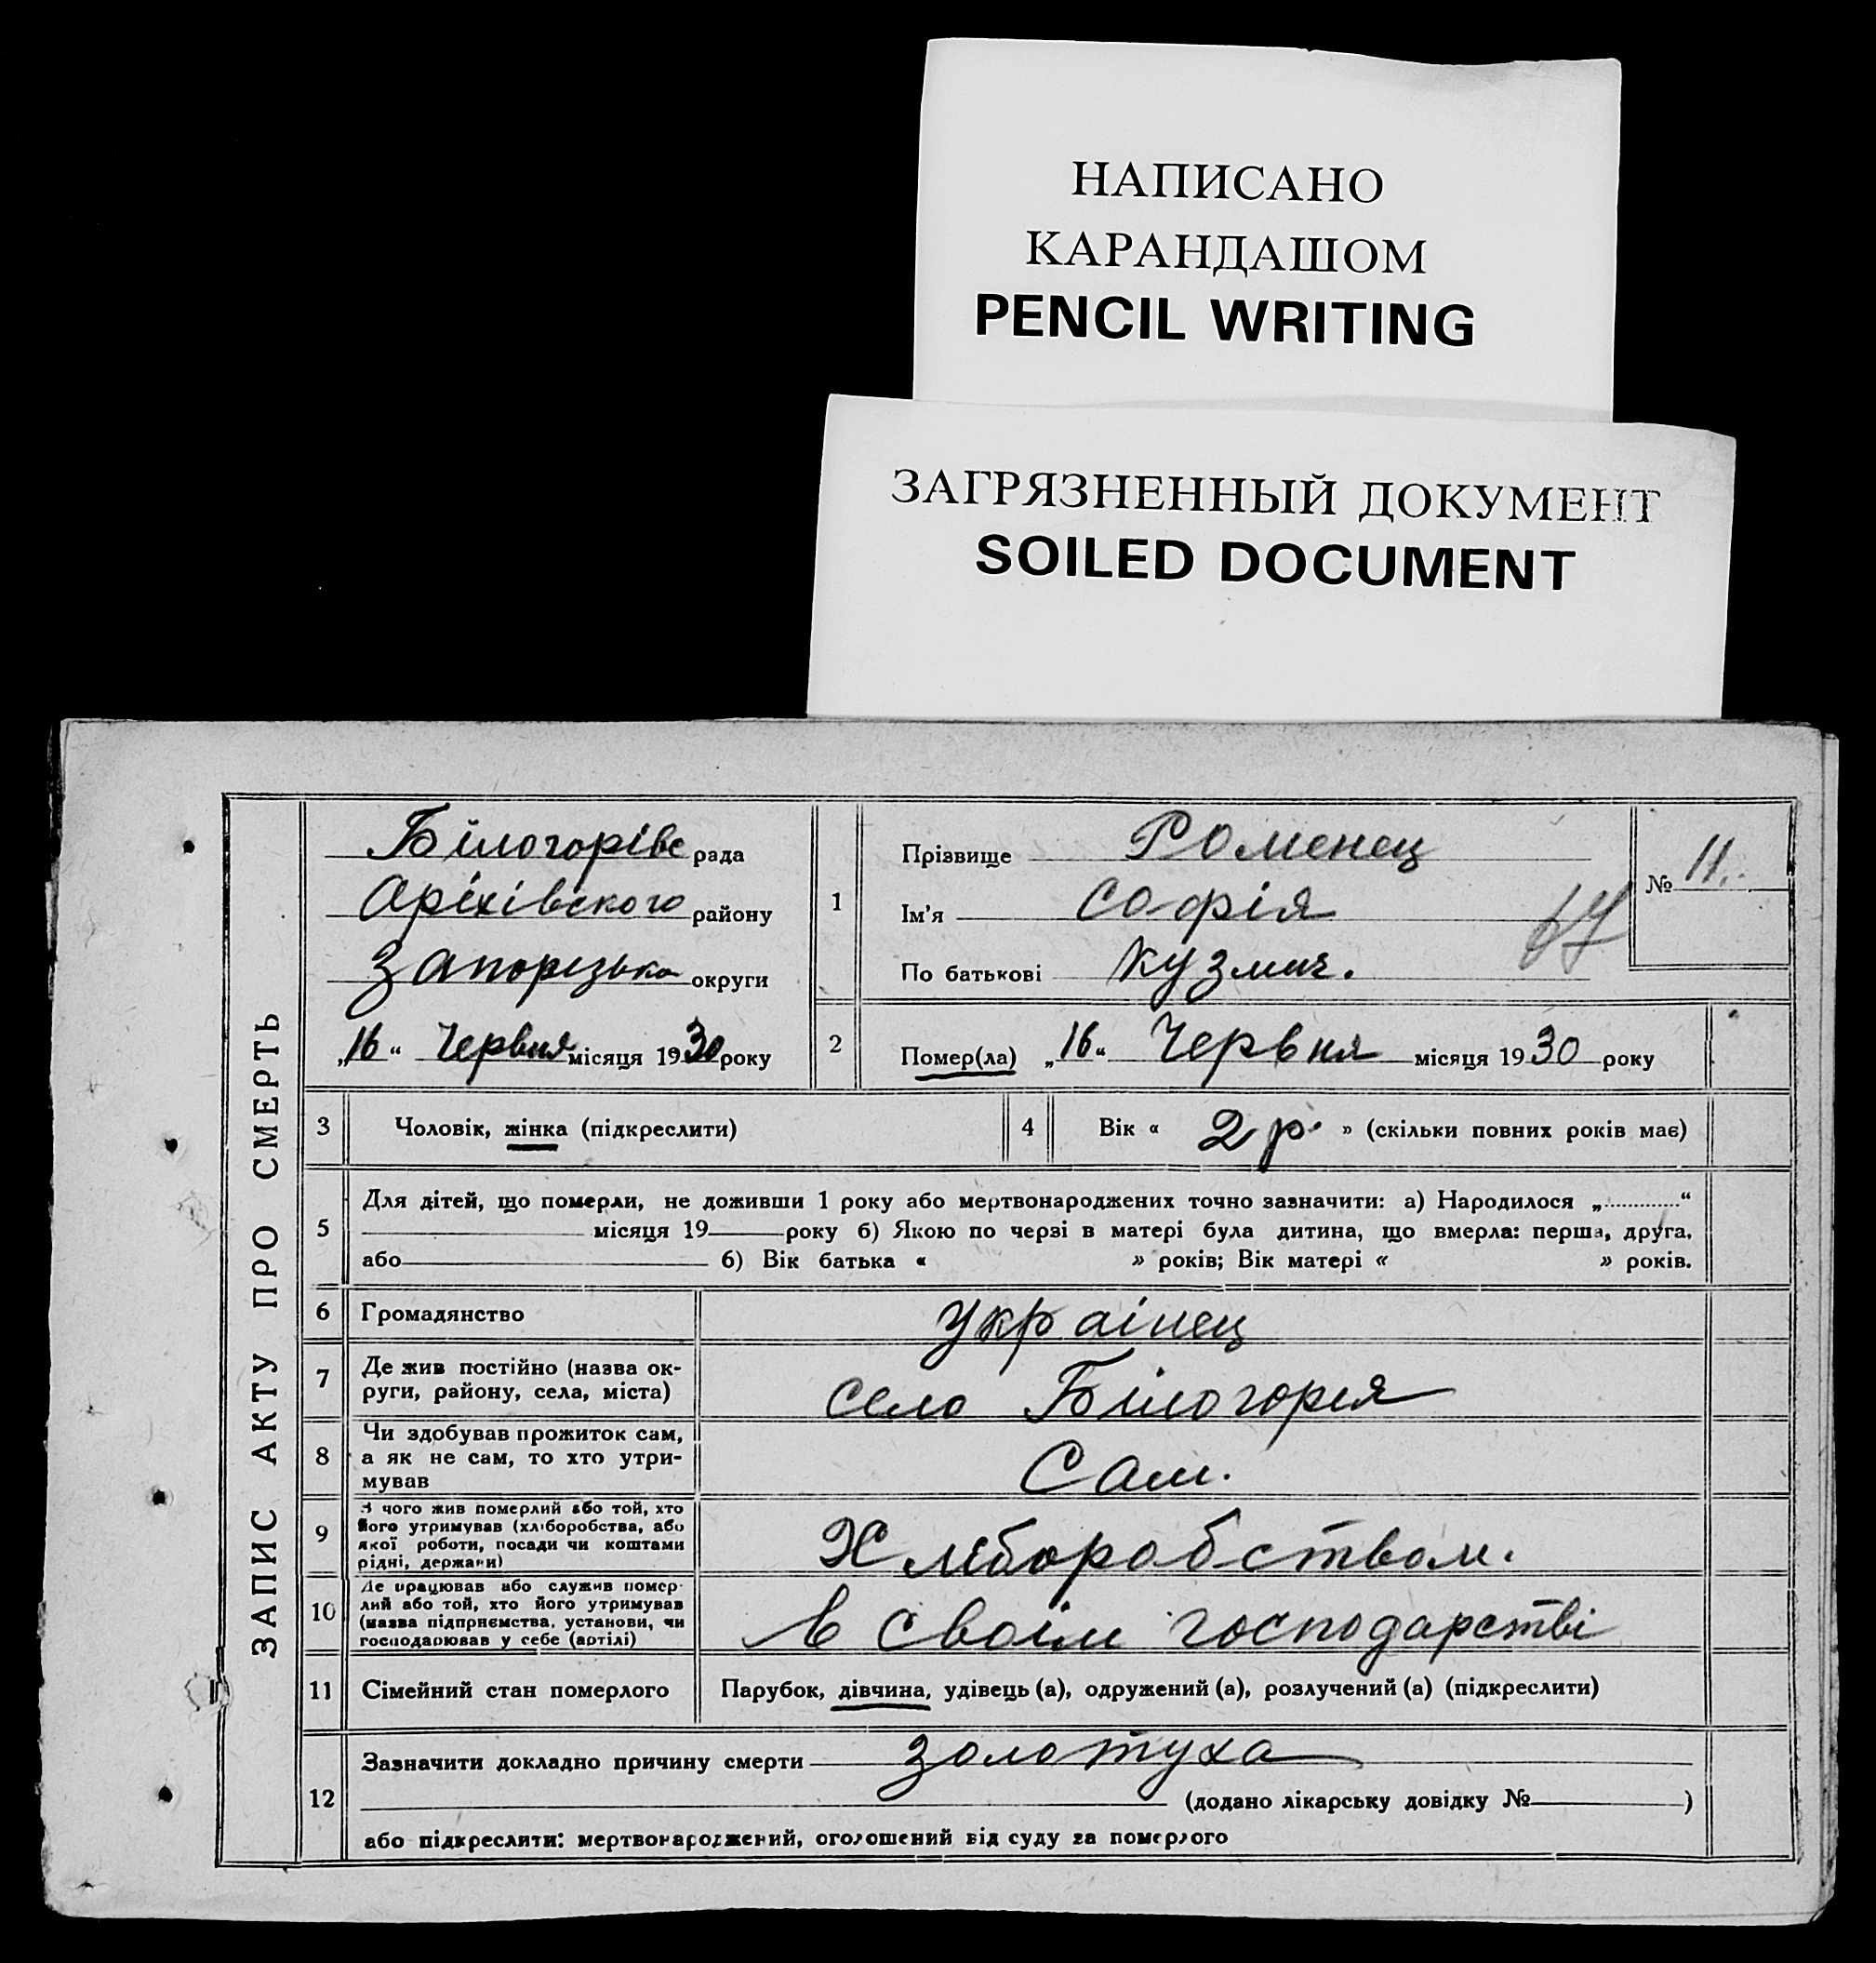 НАПИСАНО
КАРАНДАШОМ
PENCIL WRITING
ЗАГРЯЗНЕННЫЙ ДОКУМЕНТ
SOILED DOCUMENT
ЗАПИС АКТУ ПРО СМЕРТЬ
Білогорівс рада
Оріхівского району
Запорізька округи
„16“ Червня місяця 1930 року
1
Прізвище Роменец
Ім’я Софія
По батькові Кузмич.
№ 11.
2
Помер(ла) „16“ Червня місяця 1930 року
3 Чоловік, жінка (підкреслити)
4 Вік « 2 р. » (скільки повних років має)
5
Для дітей, що померли, не доживши 1 року або мертвонароджених точно зазначити: а) Народилося „............“
місяця 19 року б) Якою по черзі в матері була дитина, що вмерла: перша, друга,
або б) Вік батька « » років; Вік матері « » років.
6 Громадянство Украінец
7 Де жив постійно (назва ок-
руги, району, села, міста)
село Білогорія
8 Чи здобував прожиток сам,
а як не сам, то хто утри-
мував
Сам.
9 З чого жив померлий або той, хто
його утримував (хліборобства, або
якої роботи, посади чи коштами
рідні, держави)
Хліборобством.
10 Де працював або служив помер-
лий або той, хто його утримував
(назва підприємства, установи, чи
господарював у себе (артілі)
в своїм господарстві
11 Сімейний стан померлого Парубок, дівчина, удівець (а), одружений (а), розлучений (а) (підкреслити)
12
Зазначити докладно причину смерти золотуха
(додано лікарську довідку № )
або підкреслити: мертвонароджений, оголошений від суду за померлого